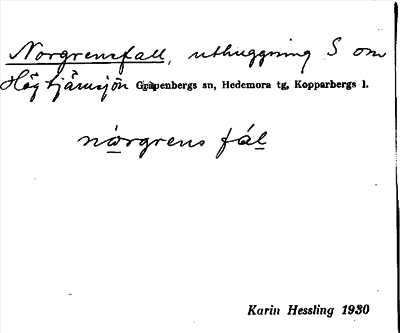 Norgrensfall, uthuggning S om
Högtjärnsjön Garpenbergs sn, Hedemora tg, Kopparbergs l.
nårgrens fál
Karin Hessling 1930